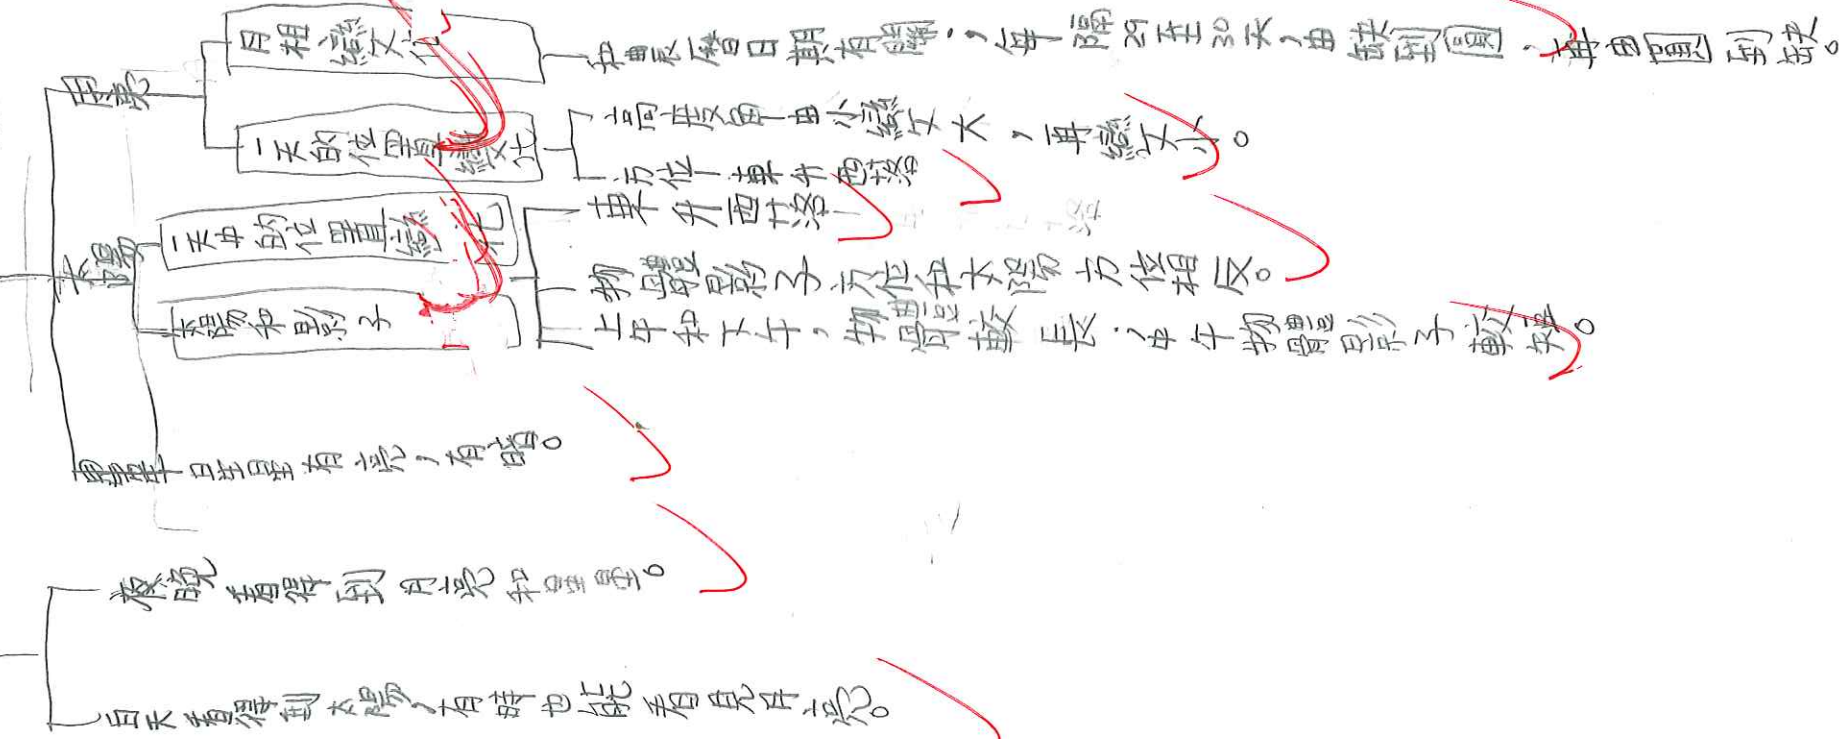 月亮
月相變化
和農曆日期有關，每隔29至30天，由缺到圓，再由圓到缺。
一天的位置變化
高度角－由小變大，再變小。
方位－東升西落
太陽
一天中的位置變化
東升西落
太陽和影子
物體影子方位和太陽方位相反。
上午和下午，物體較長，中午物體影子較短。
星星有亮，有暗。
夜晚看得到月亮和星星。
白天看得到太陽，有時也能看見月亮。